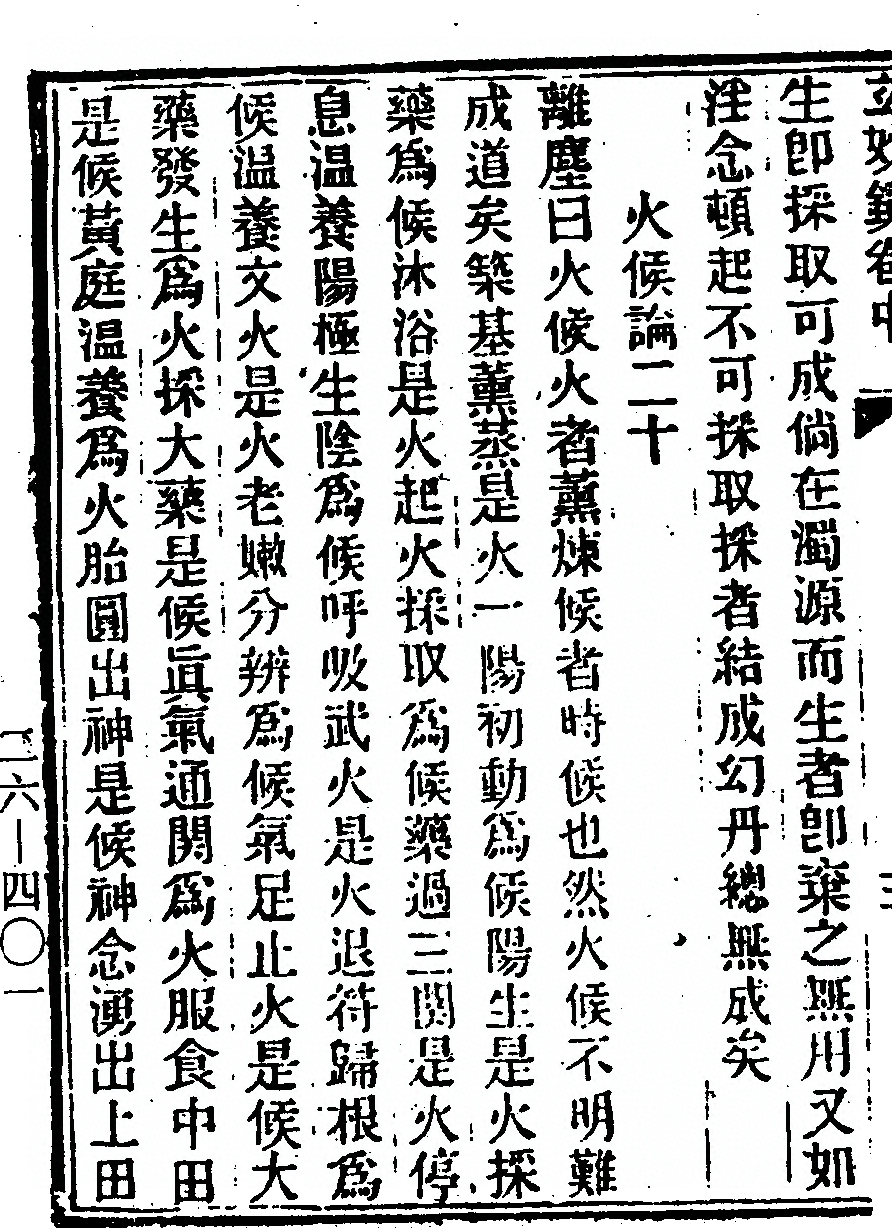 玄妙鏡卷中
三
生卽採取可成倘在濁源而生者卽棄之無用又如
淫念頓起不可採取採者結成幻丹總無成矣
火候論二十
離塵曰火候火者薰煉候者時候也然火候不明難
成道矣築基薰蒸是火一陽初動爲候陽生是火採
藥爲候沐浴是火起火採取爲候藥過三關是火停
息温養陽極生陰爲候呼吸武火是火退符歸根爲
候温養文火是火老嫩分辨爲候氣足止火是候大
藥發生爲火採大藥是候眞氣通関爲火服食中田
是候黃庭温養爲火胎圓出神是候神念湧出上田
二六—四〇一